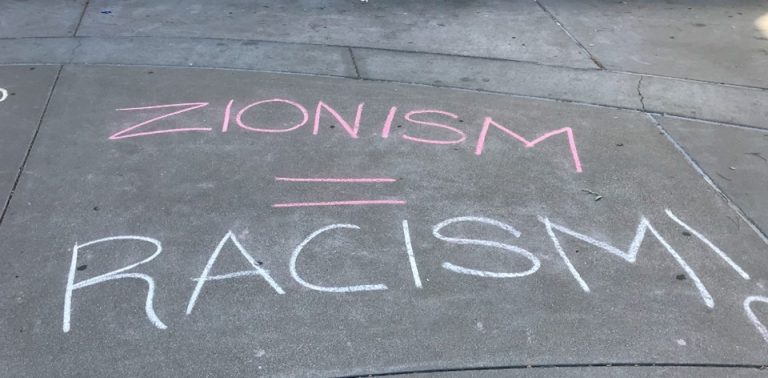 ZIONISM
=
RACISM!